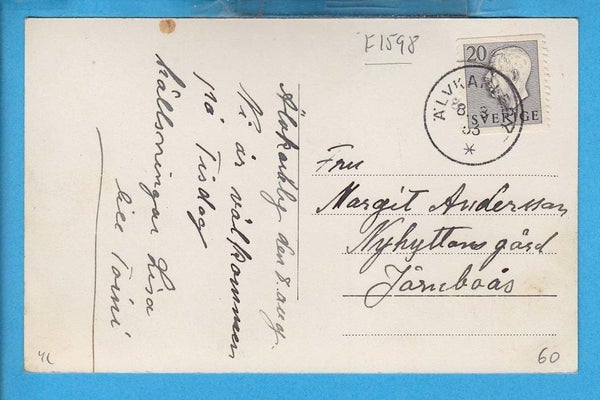 F1598
20
SVERIGE
ÄLVKARLEBY
8 8
53
Älvkarleby den 8. aug.
Ni är välkommen
på Tisdag
hälsningar Lisa
lill Toini
Fru
Margit Andersson
Nyhyttans gård
Järnboås
60